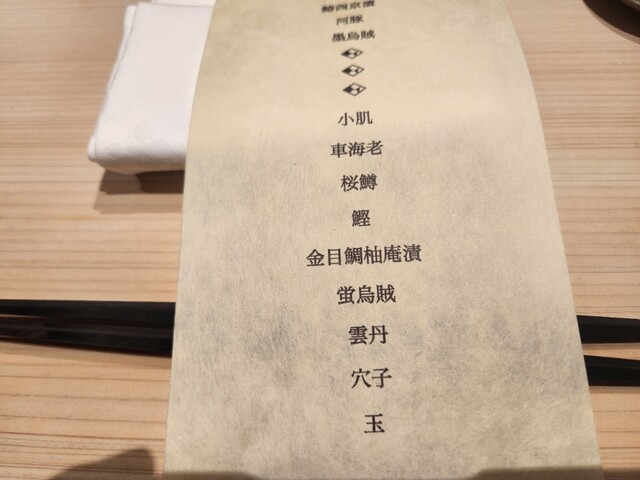 鰆西京漬
河豚
墨烏賊
小肌
車海老
桜鱒
鰹
金目鯛柚庵漬
蛍烏賊
雲丹
穴子
玉